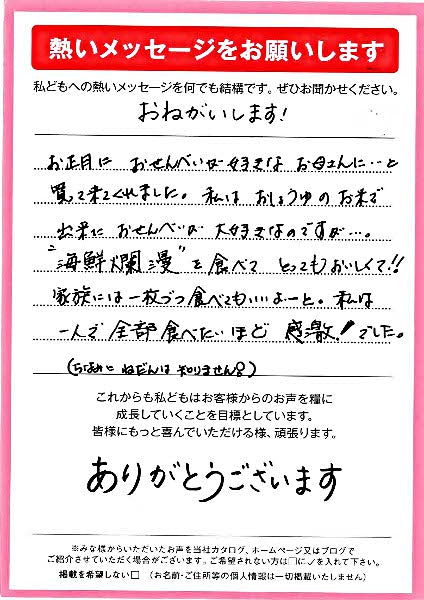 熱いメッセージをお願いします
私どもへの熱いメッセージを何でも結構です。ぜひお聞かせください。
おねがいします!
お正月に おせんべいが大好きな お母さんに…と
買って来てくれました。私は おしょうゆの お米で
出来た おせんべいが 大好きなのですが…。
"海鮮爛漫"を食べて とってもおいしくて!!
家族には一枚づつ食べてもいいよーと。私は
一人で全部食べたいほど 感激!でした。
(ちなみに ねだんは 知りません)
これからも私どもはお客様からのお声を糧に
成長していくことを目標としています。
皆様にもっと喜んでいただける様、頑張ります。
ありがとうございます
※みな様からいただいたお声を当社カタログ、ホームページ又はブログで
ご紹介させていただく場合がございます。ご希望されない方は□に✓を入れて下さい。
掲載を希望しない□ (お名前・ご住所等の個人情報は一切掲載いたしません)